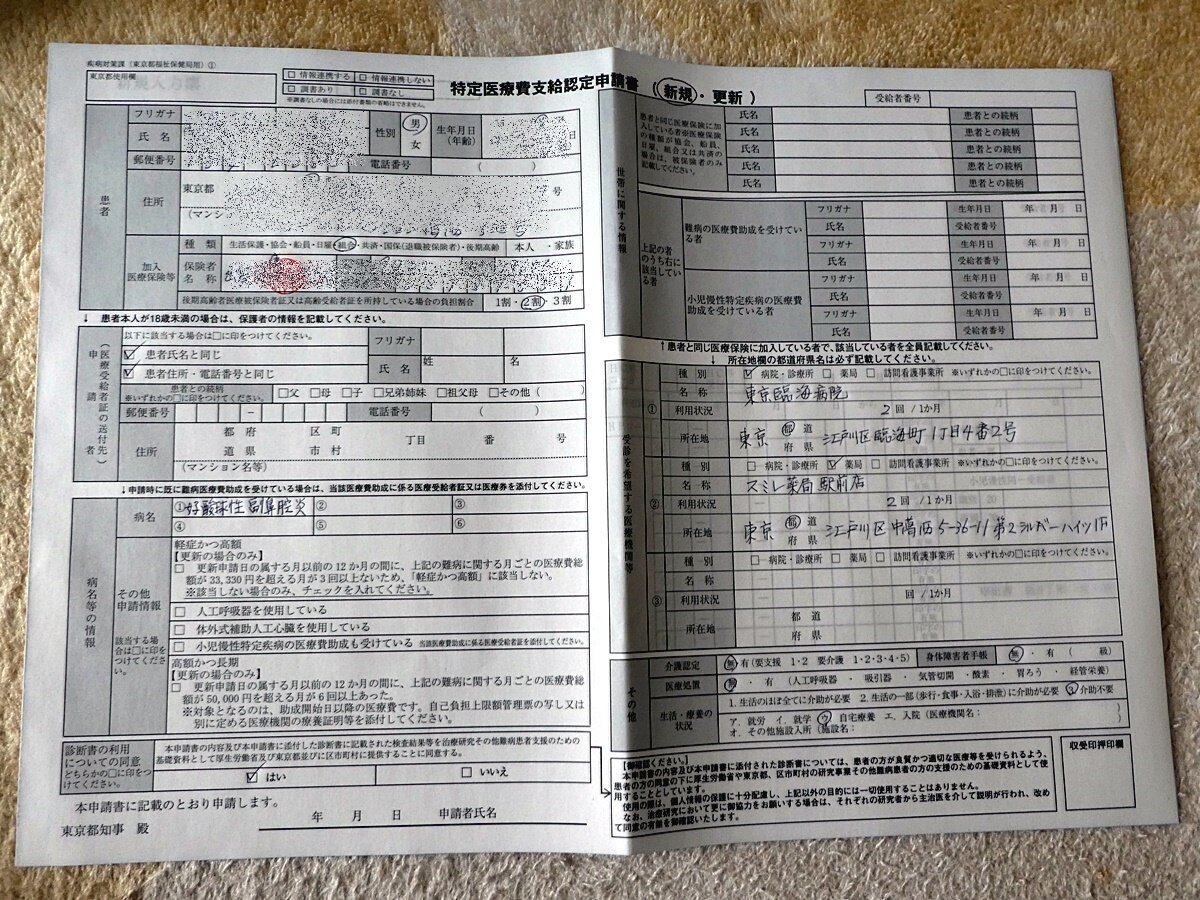 疾病対策課（東京都福祉保健局用）①
東京都使用欄
□ 情報連携する □ 情報連携しない
□ 調書あり □ 調書なし
※調書なしの場合には添付書類の省略はできません。
特定医療費支給認定申請書（新規・更新）
受給者番号
患者
フリガナ
氏名
性別 男 女
生年月日（年齢）
日
郵便番号
電話番号 （ ）
住所
東京都
号
（マンション
加入医療保険等
種類 生活保護・協会・船員・日雇・組合・共済・国保（退職被保険者）・後期高齢 本人・家族
保険者名称
後期高齢者医療被保険者証又は高齢受給者証を所持している場合の負担割合 1割・2割・3割
↓ 患者本人が18歳未満の場合は、保護者の情報を記載してください。
申請者（医療受給者証の送付先）
以下に該当する場合は□に印をつけてください。
☑ 患者氏名と同じ
☑ 患者住所・電話番号と同じ
フリガナ
氏名 姓 名
患者との続柄
※いずれかの□に印をつけてください。
□父 □母 □子 □兄弟姉妹 □祖父母 □その他（ ）
郵便番号 －
電話番号 （ ）
住所
都 府 区 町
道 県 市 村
丁目 番 号
（マンション名等）
↓申請時に既に難病医療助成を受けている場合は、当該医療費助成に係る医療受給者証又は医療券を添付してください。
病名等の情報
病名 ①好酸球性副鼻腔炎 ② ③
④ ⑤ ⑥
その他申請情報
該当する場合は□に印をつけてください。
軽症かつ高額
【更新の場合のみ】
□ 更新申請日の属する月以前の12か月の間に、上記の難病に関する月ごとの医療費総
額が33,330円を超える月が3回以上ないため、「軽症かつ高額」に該当しない。
※該当しない場合のみ、チェックを入れてください。
□ 人工呼吸器を使用している
□ 体外式補助人工心臓を使用している
□ 小児慢性特定疾病の医療費助成も受けている 当該医療費助成に係る医療受給者証を添付してください。
高額かつ長期
【更新の場合のみ】
□ 更新申請日の属する月以前の12か月の間に、上記の難病に関する月ごとの医療費総
額が50,000円を超える月が6回以上あった。
※対象となるのは、助成開始日以降の医療費です。自己負担上限額管理票の写し又は
別に定める医療機関の療養証明等を添付してください。
診断書の利用についての同意
どちらかの□に印をつけてください。
本申請書の内容及び本申請書に添付した診断書に記載された検査結果等を治療研究その他難病患者支援のための
基礎資料として厚生労働省及び東京都並びに区市町村に提供することに同意する。
☑ はい □ いいえ
本申請書に記載のとおり申請します。
年 月 日 申請者氏名
東京都知事 殿
世帯に関する情報
患者と同じ医療保険に加入している者※医療保険の種類が協会、船員、日雇、組合又は共済の場合は、被保険者のみ記載してください。
氏名 患者との続柄
氏名 患者との続柄
氏名 患者との続柄
氏名 患者との続柄
氏名 患者との続柄
上記の者のうち右に該当している者
難病の医療費助成を受けている者
フリガナ 生年月日 年 月 日
氏名 受給者番号
フリガナ 生年月日 年 月 日
氏名 受給者番号
小児慢性特定疾病の医療費助成を受けている者
フリガナ 生年月日 年 月 日
氏名 受給者番号
フリガナ 生年月日 年 月 日
氏名 受給者番号
↑患者と同じ医療保険に加入している者で、該当している者を全員記載してください。
所在地欄の都道府県名は必ず記載してください。
受診を希望する医療機関等
① 種別 ☑ 病院・診療所 □ 薬局 □ 訪問看護事業所 ※いずれかの□に印をつけてください。
名称 東京臨海病院
利用状況 2 回 /1か月
所在地 東京 都 道 府 県 江戸川区臨海町1丁目4番2号
② 種別 □ 病院・診療所 ☑ 薬局 □ 訪問看護事業所 ※いずれかの□に印をつけてください。
名称 スミレ薬局 駅前店
利用状況 2 回 /1か月
所在地 東京 都 道 府 県 江戸川区中葛西5-36-11 第2シルバーハイツ1F
③ 種別 □ 病院・診療所 □ 薬局 □ 訪問看護事業所 ※いずれかの□に印をつけてください。
名称
利用状況 回 /1か月
所在地 都 道 府 県
その他
介護認定 無・有（要支援 1・2 要介護 1・2・3・4・5） 身体障害者手帳 無・有（ 級）
医療処置 無・有（人工呼吸器 ・ 吸引器 ・ 気管切開 ・ 酸素 ・ 胃ろう ・ 経管栄養）
生活・療養の状況
1. 生活のほぼ全てに介助が必要 2. 生活の一部（歩行・食事・入浴・排泄）に介助が必要 3. 介助不要
ア. 就労 イ. 就学 ウ. 自宅療養 エ. 入院（医療機関名：
オ. その他施設入所（施設名： ）
【御確認ください。】
本申請書の内容及び本申請書に添付された診断書については、患者の方が良質かつ適切な医療等を受けられるよう、
患者の方の同意の下に厚生労働省や東京都、区市町村の研究事業その他難病患者の方の支援のための基礎資料として使
用することとしています。
使用の際は、個人情報の保護に十分配慮し、上記以外の目的には一切使用することはありません。
なお、治療研究において更に御協力をお願いする場合は、それぞれの研究者から主治医を介して説明が行われ、改め
て同意の有無を御確認いたします。
収受印押印欄